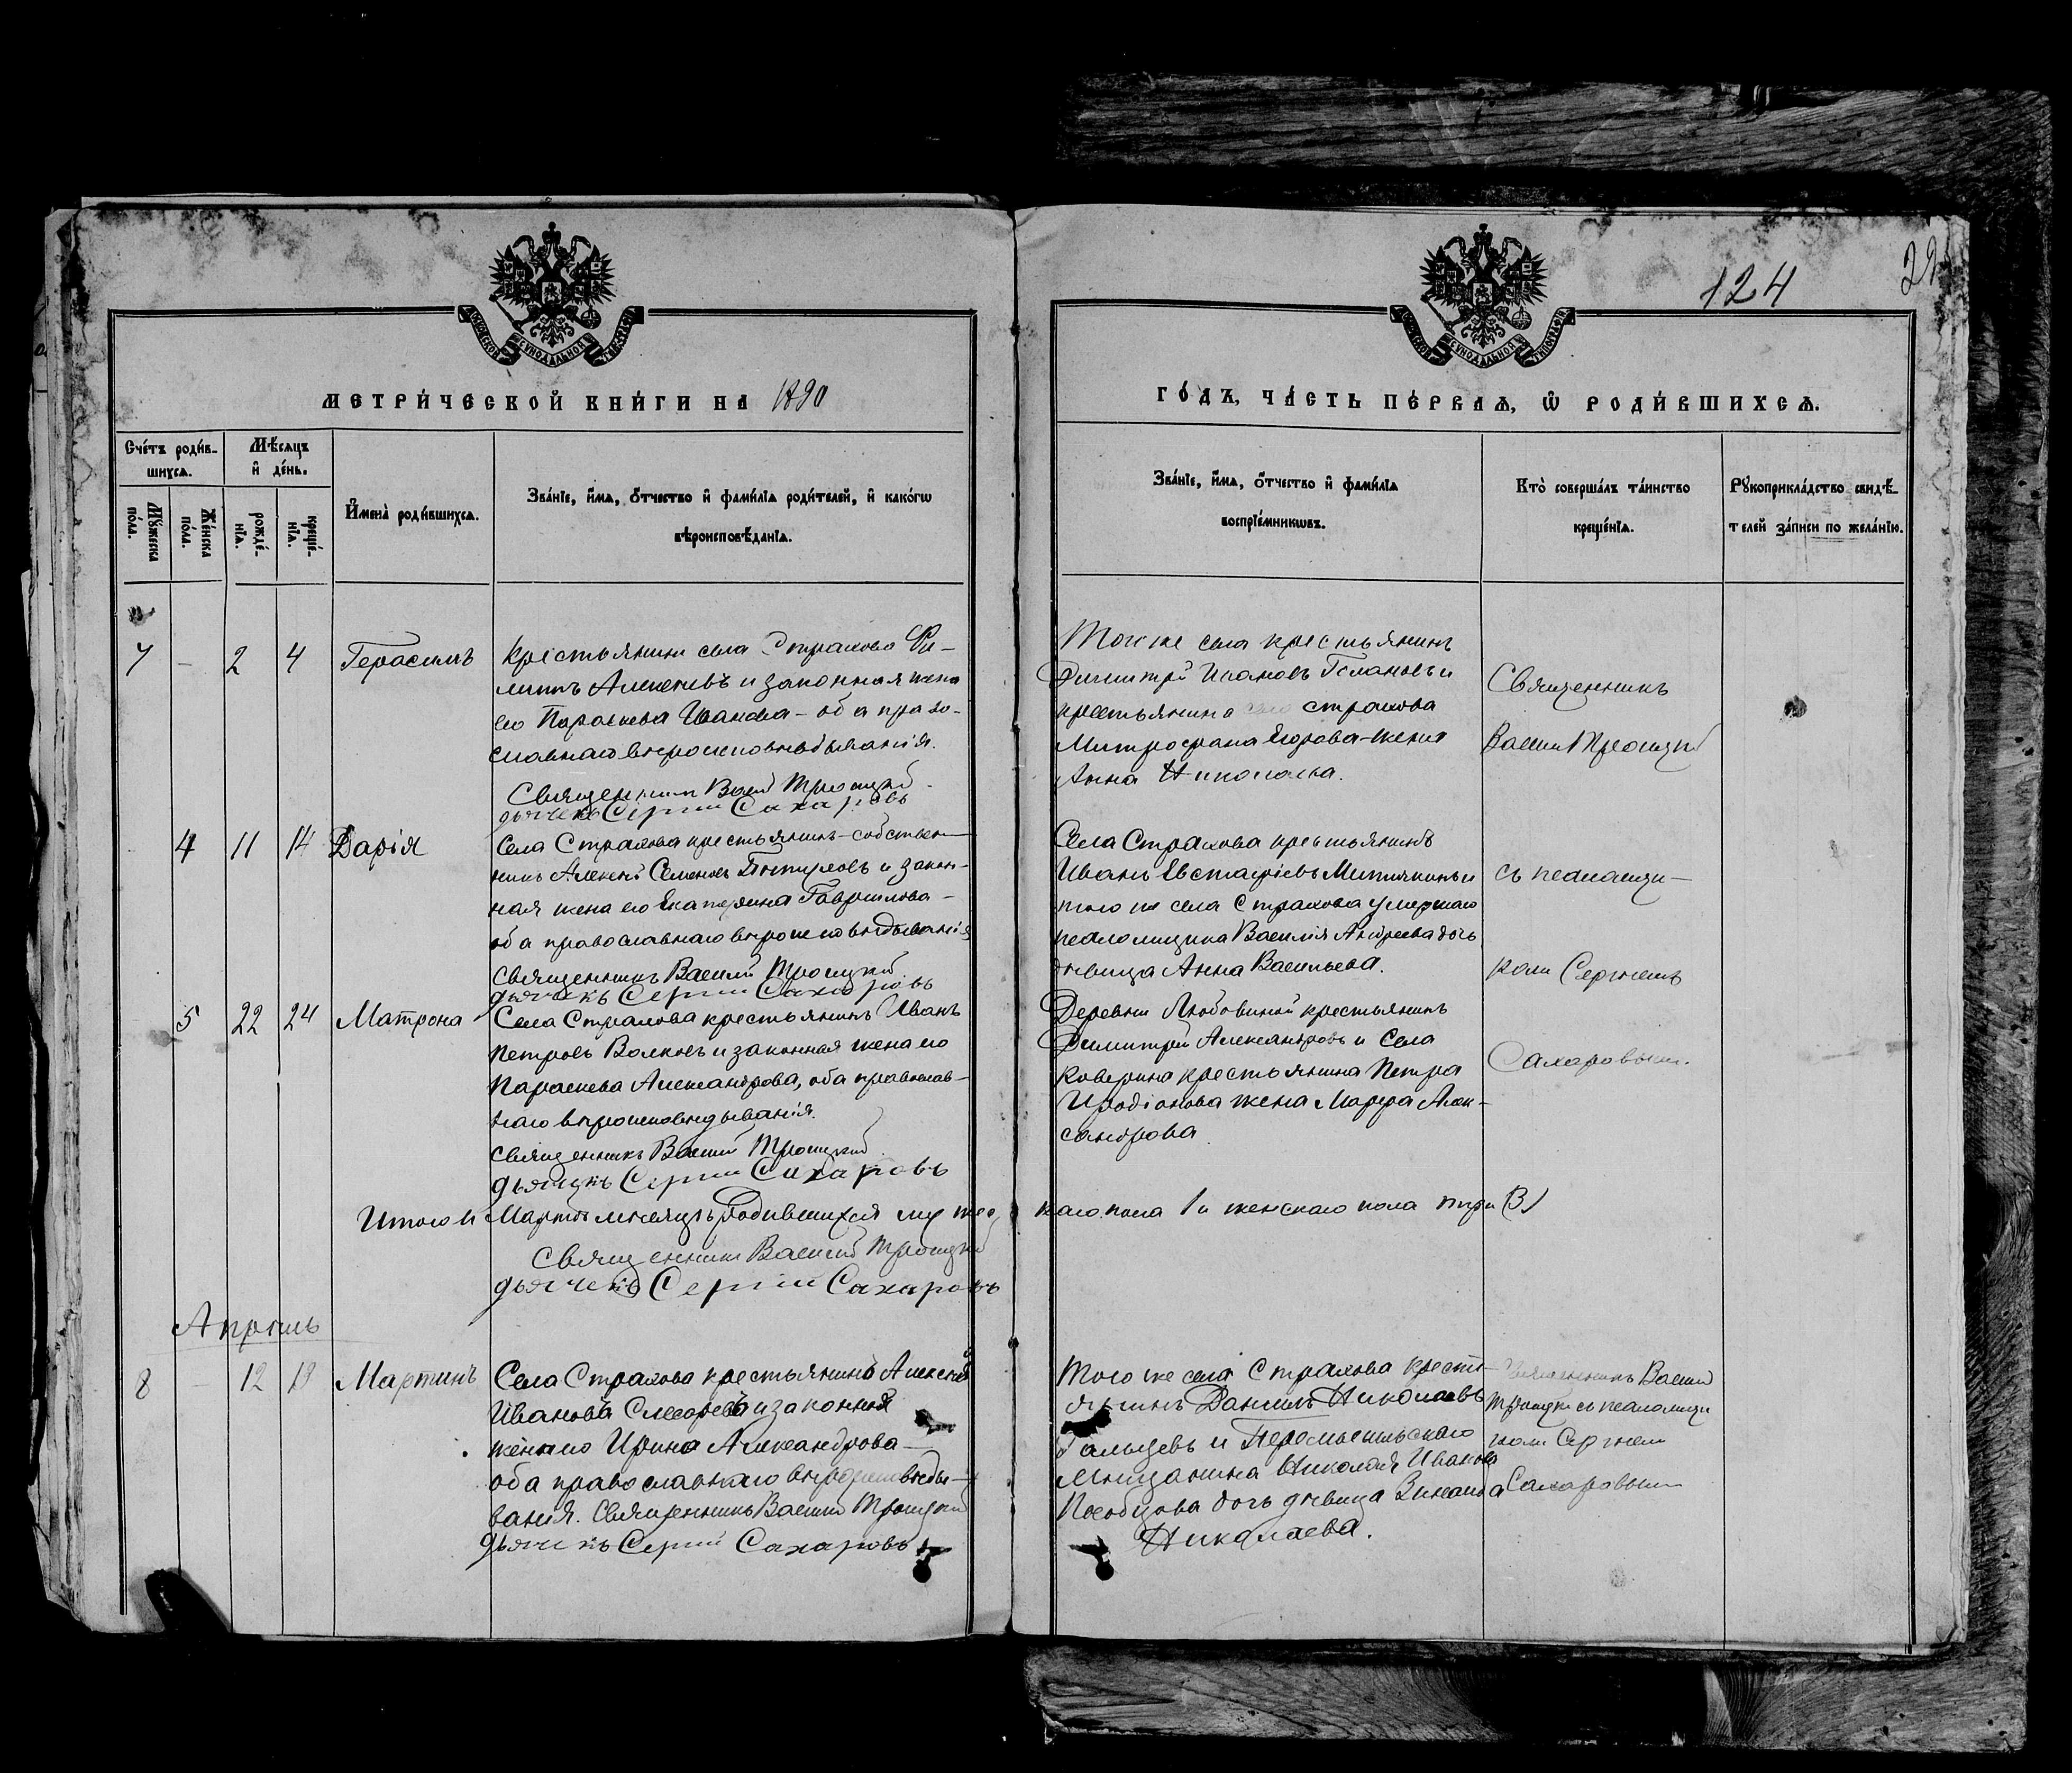 124
29
МОСКОВСКОЙ СУНОДАЛЬНОЙ ТИПОГРАФІИ
МОСКОВСКОЙ СУНОДАЛЬНОЙ ТИПОГРАФІИ
МЕТРИ́ЧЕСКОЙ КНИ́ГИ НА 1890
ГО́ДЪ, ЧА́СТЬ ПЕ́РВАѦ, Ѡ РОДИ́ВШИХСѦ.
Сче́тъ роди́в-
шихсѧ.
Мѣ́сѧцъ
и де́нь.
Мꙋ́жеска по́ла.
Же́нска по́ла.
рожде́-
нїѧ.
креще́-
нїѧ.
И҆мена̀ роди́вшихсѧ.
Зва́нїе, и҆́мѧ, ѻ҆́тчество и҆ фами́лїѧ роди́телей, и҆ како́гѡ
вѣроисповѣ́данїѧ.
Зва́нїе, и҆́мѧ, ѻ҆́тчество и҆ фами́лїѧ
воспрїе́мникѡвъ.
Кто̀ соверша́лъ та́инство
креще́нїѧ.
Рꙋкоприкла́дство свидѣ́-
телей за́писи по жела́нїю.
7 - 2 4 Герасимъ
Крестьянинъ села Страхова Фи-
липъ Алексѣевъ и законная жена
его Параскева Иванова - оба право-
славнаго вѣроисповѣдыванія.
Священникъ Васил Троицкій
дьячекъ Сергій Сахаровъ
Тогоже села крестьянинъ
Димитрій Ивановъ и
крестьянина село Страхова
Митрофана Егорова-жена
Анна Николаева.
Священникъ
Васил Троицкій
4 11 14 Дарія
Села Страхова крестьянинъ-собствен-
никъ Алексѣй Семеновъ и закон-
ная жена его Екатерина Гаврилова -
оба православнаго вѣроисповѣдыванія
Священникъ Василій Троицкій
дьячекъ Сергій Сахаровъ
Села Страхова крестьянинъ
Иванъ Евстафіевъ Митичкинъ и
того же села Страхова умершаго
псаломщика Василія Андреева дочь
дѣвица Анна Васильева.
съ псаломщи-
комъ Сергіемъ
Сахаровымъ.
5 22 24 Матрона
Села Страхова крестьянинъ Иванъ
Петровъ Волковъ и законная жена его
Параскева Александрова, оба православ-
наго вѣроисповѣдыванія.
Священникъ Васил Троицкій
дьячекъ Сергій Сахаровъ
Деревни Любовиной крестьянинъ
Димитрій Александровъ и Села
Коверина крестьянина Петра
Иродіонова жена Марфа Алек-
сандрова.
Итого въ Мартѣ мѣсяцѣ родившихся мужес
каго пола 1 и женскаго пола три (3)
Священникъ Василій Троицкій
дьячекъ Сергій Сахаровъ
Апрѣль
8 - 12 13 Мартинъ
Села Страхова крестьянинъ Алексѣй
Ивановъ Слесаревъ и законная
жена его Ирина Александрова -
оба православнаго вѣроисповѣды-
ванія. Священникъ Василій Троицкій
дьячекъ Сергій Сахаровъ
Того же села Страхова крестья-
янинъ Даніилъ Николаевъ
Гальцевъ и Перемышльскаго
Мѣщанина Николая Иванова
дочь дѣвица Зинаида
Николаева.
Священникъ Василій
Троицкій съ псаломщи
комъ Сергіемъ
Сахаровымъ